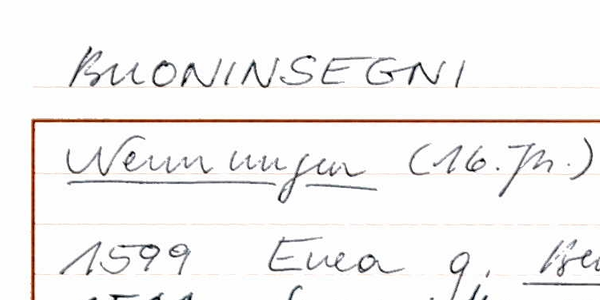 BUONINSEGNI
Nennungen (16. Jh.)
1599 Enea q.